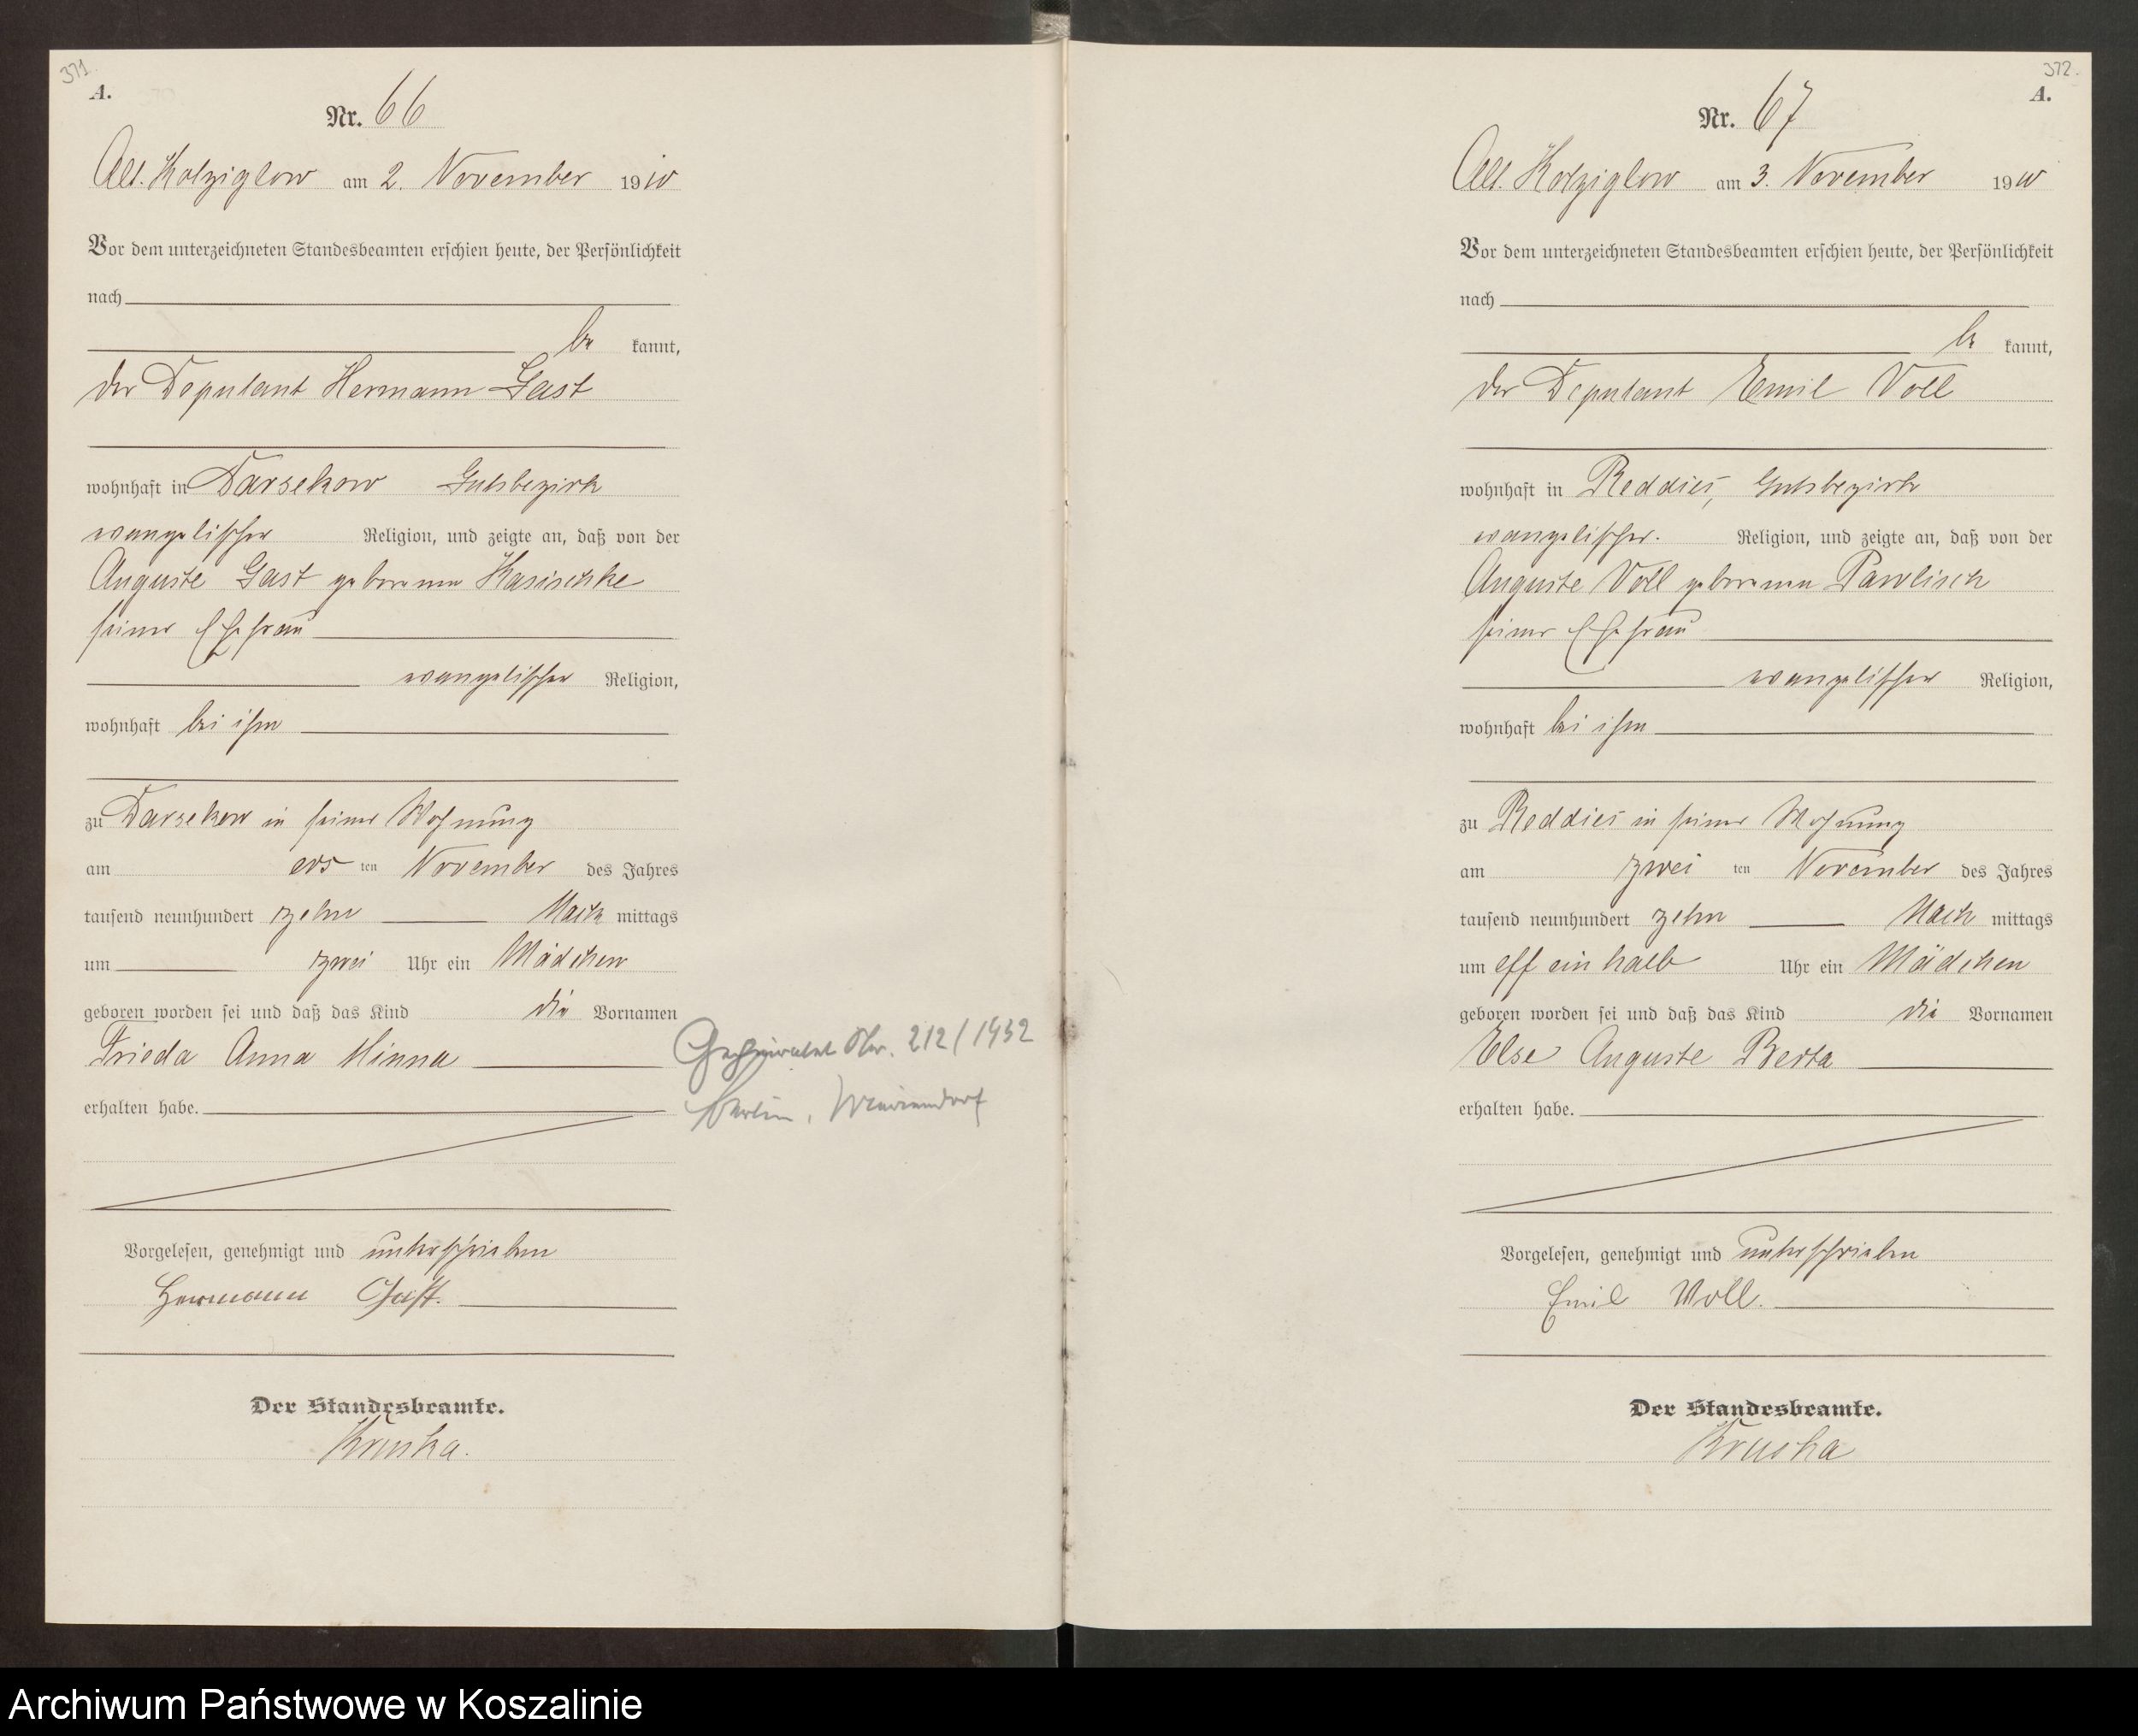 371.
A.
Nr. 66
Alt. Kolziglow am 2. November 1910
Vor dem unterzeichneten Standesbeamten erschien heute, der Persönlichkeit
nach
be kannt,
der Deputant Hermann Gast
wohnhaft in Darsekow Gutsbezirk
evangelischer Religion, und zeigte an, daß von der
Auguste Gast geborenen Kasischke
seiner Ehefrau
evangelischer Religion,
wohnhaft bei ihm
zu Darsekow in seiner Wohnung
am ers ten November des Jahres
tausend neunhundert zehn Nach mittags
um zwei Uhr ein Mädchen
geboren worden sei und daß das Kind die Vornamen
Frieda Anna Minna
erhalten habe.
Geheiratet Nr. 212/1932
Berlin, Mariendorf
Vorgelesen, genehmigt und unterschrieben
Hermann Gast.
Der Standesbeamte.
Kruska.
372.
A.
Nr. 67
Alt. Kolziglow am 3. November 1910
Vor dem unterzeichneten Standesbeamten erschien heute, der Persönlichkeit
nach
be kannt,
der Deputant Emil Voll
wohnhaft in Reddies, Gutsbezirk
evangelischer. Religion, und zeigte an, daß von der
Auguste Voll geborenen Pawlisch
seiner Ehefrau
evangelischer Religion,
wohnhaft bei ihm
zu Reddies in seiner Wohnung
am zwei ten November des Jahres
tausend neunhundert zehn Nach mittags
um elf ein halb Uhr ein Mädchen
geboren worden sei und daß das Kind die Vornamen
Else Auguste Berta
erhalten habe.
Vorgelesen, genehmigt und unterschrieben
Emil Voll.
Der Standesbeamte.
Kruska
Archiwum Państwowe w Koszalinie